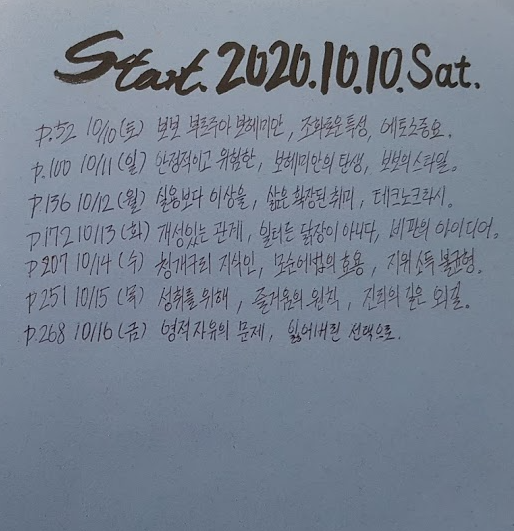 Start. 2020.10.10. Sat.
p.52 10/10(토) 보보 부르주아 보헤미안, 조화로운 특성, 에토스중요.
p.100 10/11(일) 안정적이고 위험한, 보헤미안의 탄생, 보보의 스타일.
p136 10/12(월) 실용보다 이상을, 삶은 확장된 취미, 테크노크라시.
p172 10/13(화) 개성있는 관계, 일터는 닭장이 아니다, 비판의 아이디어.
p207 10/14(수) 청개구리 지식인, 모순어법의 효용, 지위 소득 불균형.
p.251 10/15(목) 성취를 위해, 즐거움의 원칙, 진리의 길은 외길.
p.268 10/16(금) 영적자유의 문제, 잃어버린 선택으로.